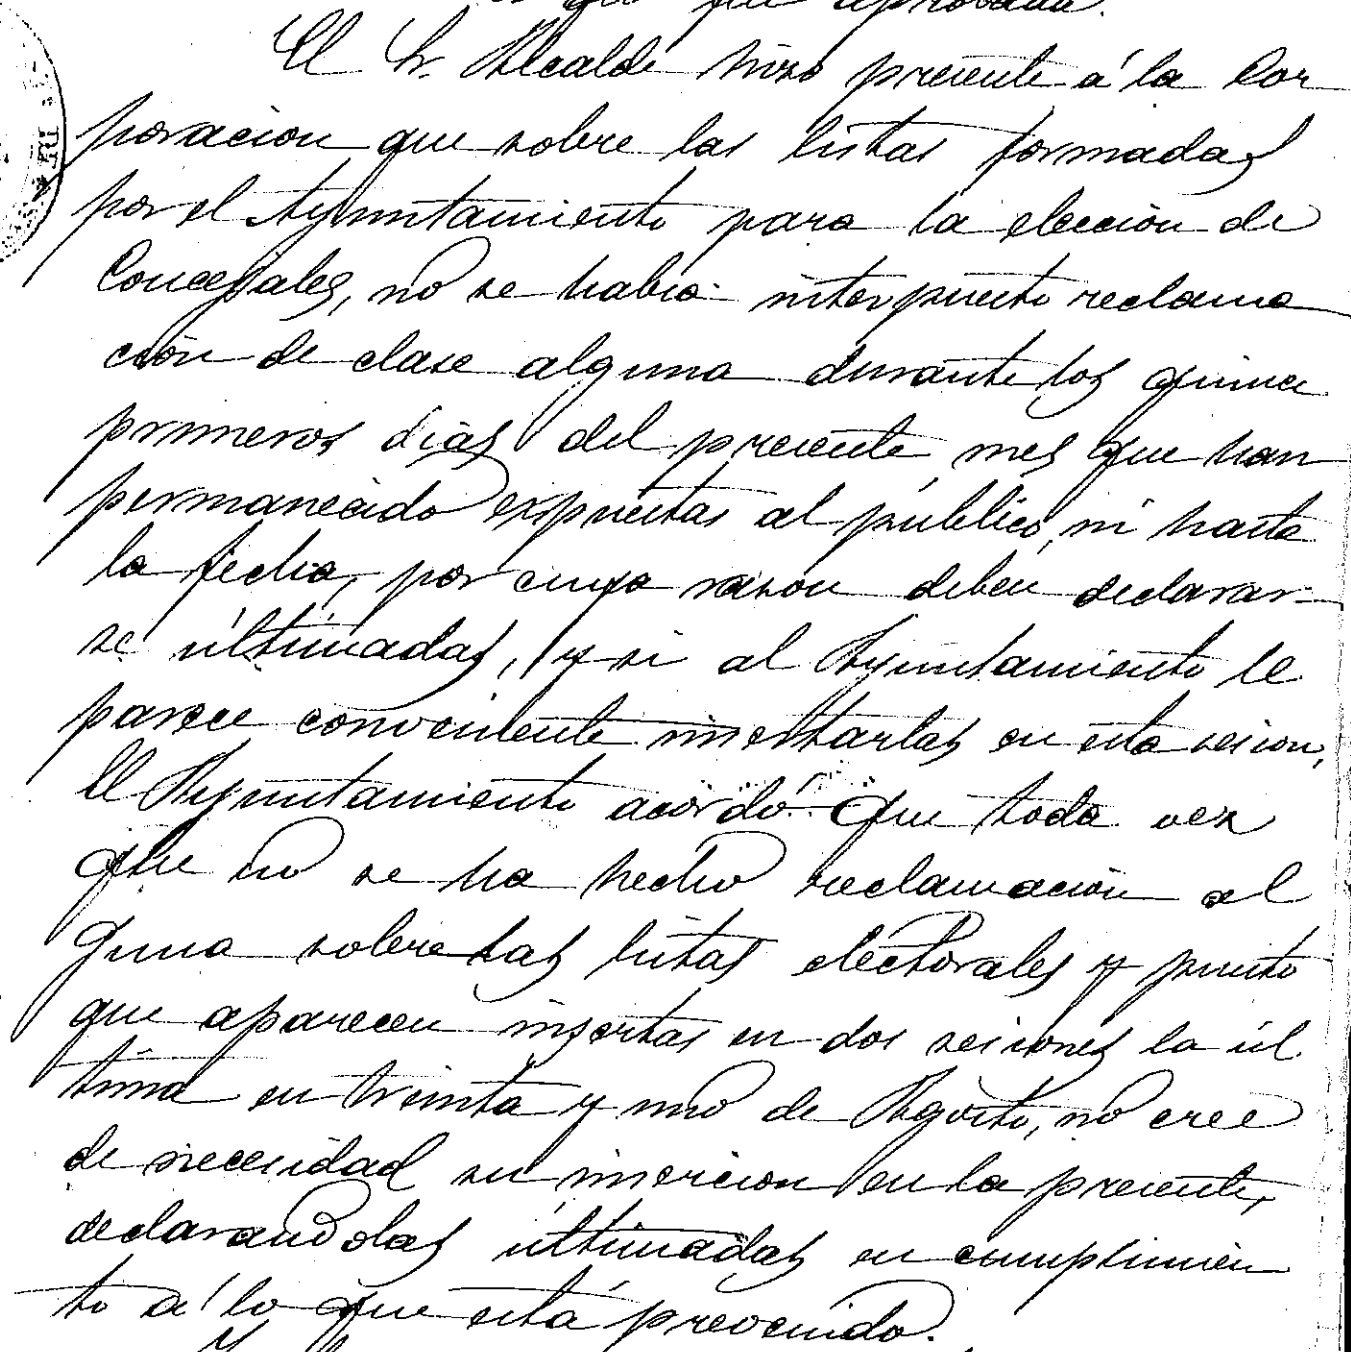 que fue aprobada.
El Sr. Alcalde hizo presente á la Cor
poracion que sobre las listas formadas
por el Ayuntamiento para la eleccion de
Concejales, no se habia interpuesto reclama
ción de clase alguna durante los quince
primeros dias del presente mes que han
permanecido expuestas al público, ni hasta
la fecha, por cuya razon deben declarar-
se últimadas, y si al Ayuntamiento le
parece conveniente insertarlas en esta sesion,
El Ayuntamiento acordó que toda vez
que no se ha hecho reclamación al
guna sobre las listas electorales y puesto
que aparecen insertas en dos sesiones la úl
tima en treinta y uno de Agosto, no cree
de necesidad su insercion en la presente,
declarandolas últimadas en cumplimien
to á lo que está prevenido.